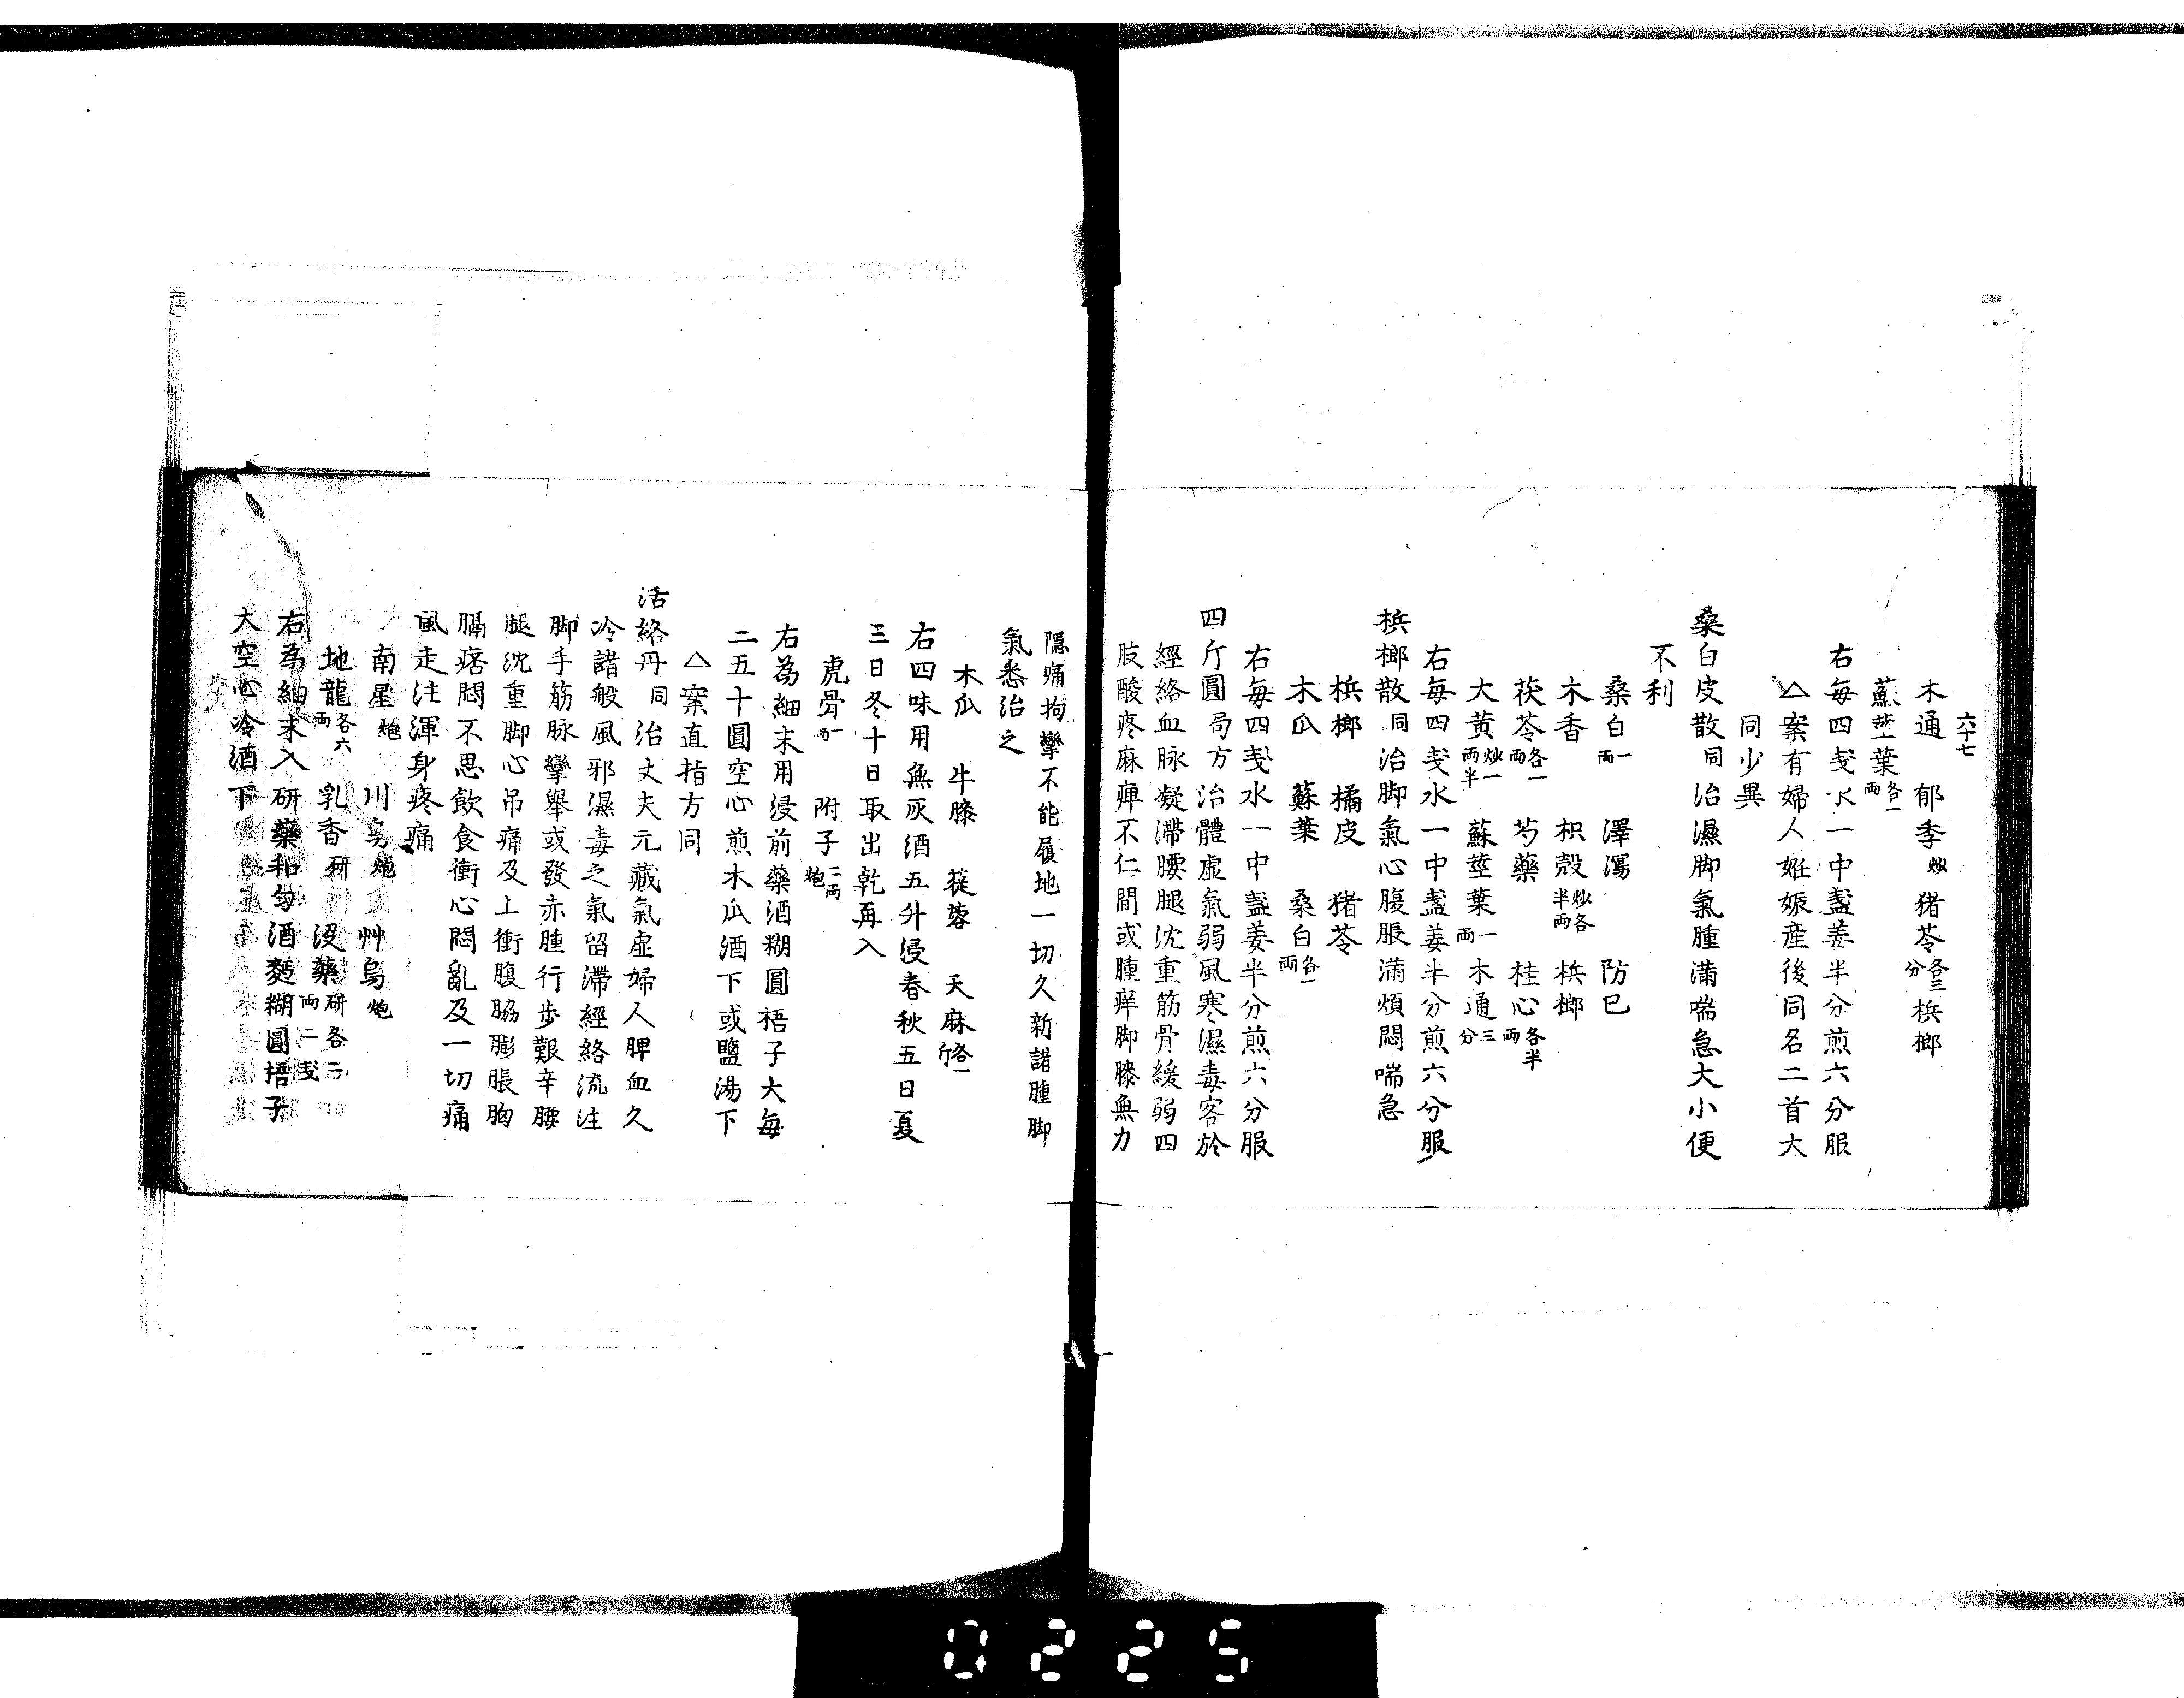 六十七
木通　郁季炒　猪苓各三分　梹榔
蘇莖葉各一両
右毎四戔水一中盞姜半分煎六分服
△案有婦人妊娠産後同名二首大
同少異
桑白皮散同治濕脚氣腫滿喘急大小便
不利
桑白一両　澤瀉　防巳
木香　枳殻炒各半両　梹榔
茯苓各一両　芍藥　桂心各半両
大黄炒一両半　蘇莖葉一両　木通三分
右毎四戔水一中盞姜半分煎六分服
梹榔散同治脚氣心腹脹滿煩悶喘急
梹榔　橘皮　猪苓
木瓜　蘇葉　桑白各一両
右毎四戔水一中盞姜半分煎六分服
四斤圓局方治體虚氣弱風寒濕毒客於
經絡血脉凝滯腰腿沈重筋骨緩弱四
肢酸疼麻痺不仁間或腫痒脚膝無力
隠痛拘攣不能履地一切久新諸腫脚
氣悉治之
木瓜　牛膝　蓯蓉　天麻各一斤
右四味用無灰酒五升浸春秋五日夏
三日冬十日取出乾再入
虎骨一両　附子二両炮
右為細末用浸前藥酒糊圓梧子大毎
二五十圓空心煎木瓜酒下或鹽湯下
△案直指方同
活絡丹同治丈夫元藏氣虚婦人脾血久
冷諸般風邪濕毒之氣留滯經絡流注
脚手筋脉攣舉或發赤腫行歩艱辛腰
腿沈重脚心吊痛及上衝腹脇膨脹胸
膈痞悶不思飲食衝心悶亂及一切痛
風走注渾身疼痛
南星炮　川烏炮　艸烏炮
地龍各六両　乳香研　没藥研各二両二戔
右為細末入研藥和匀酒麪糊圓梧子
大空心冷酒下
0225